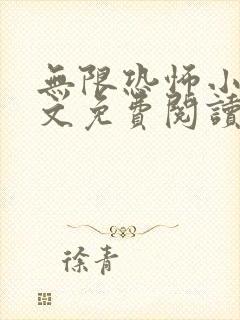 無限恐怖小
文免費閱讀
徐青